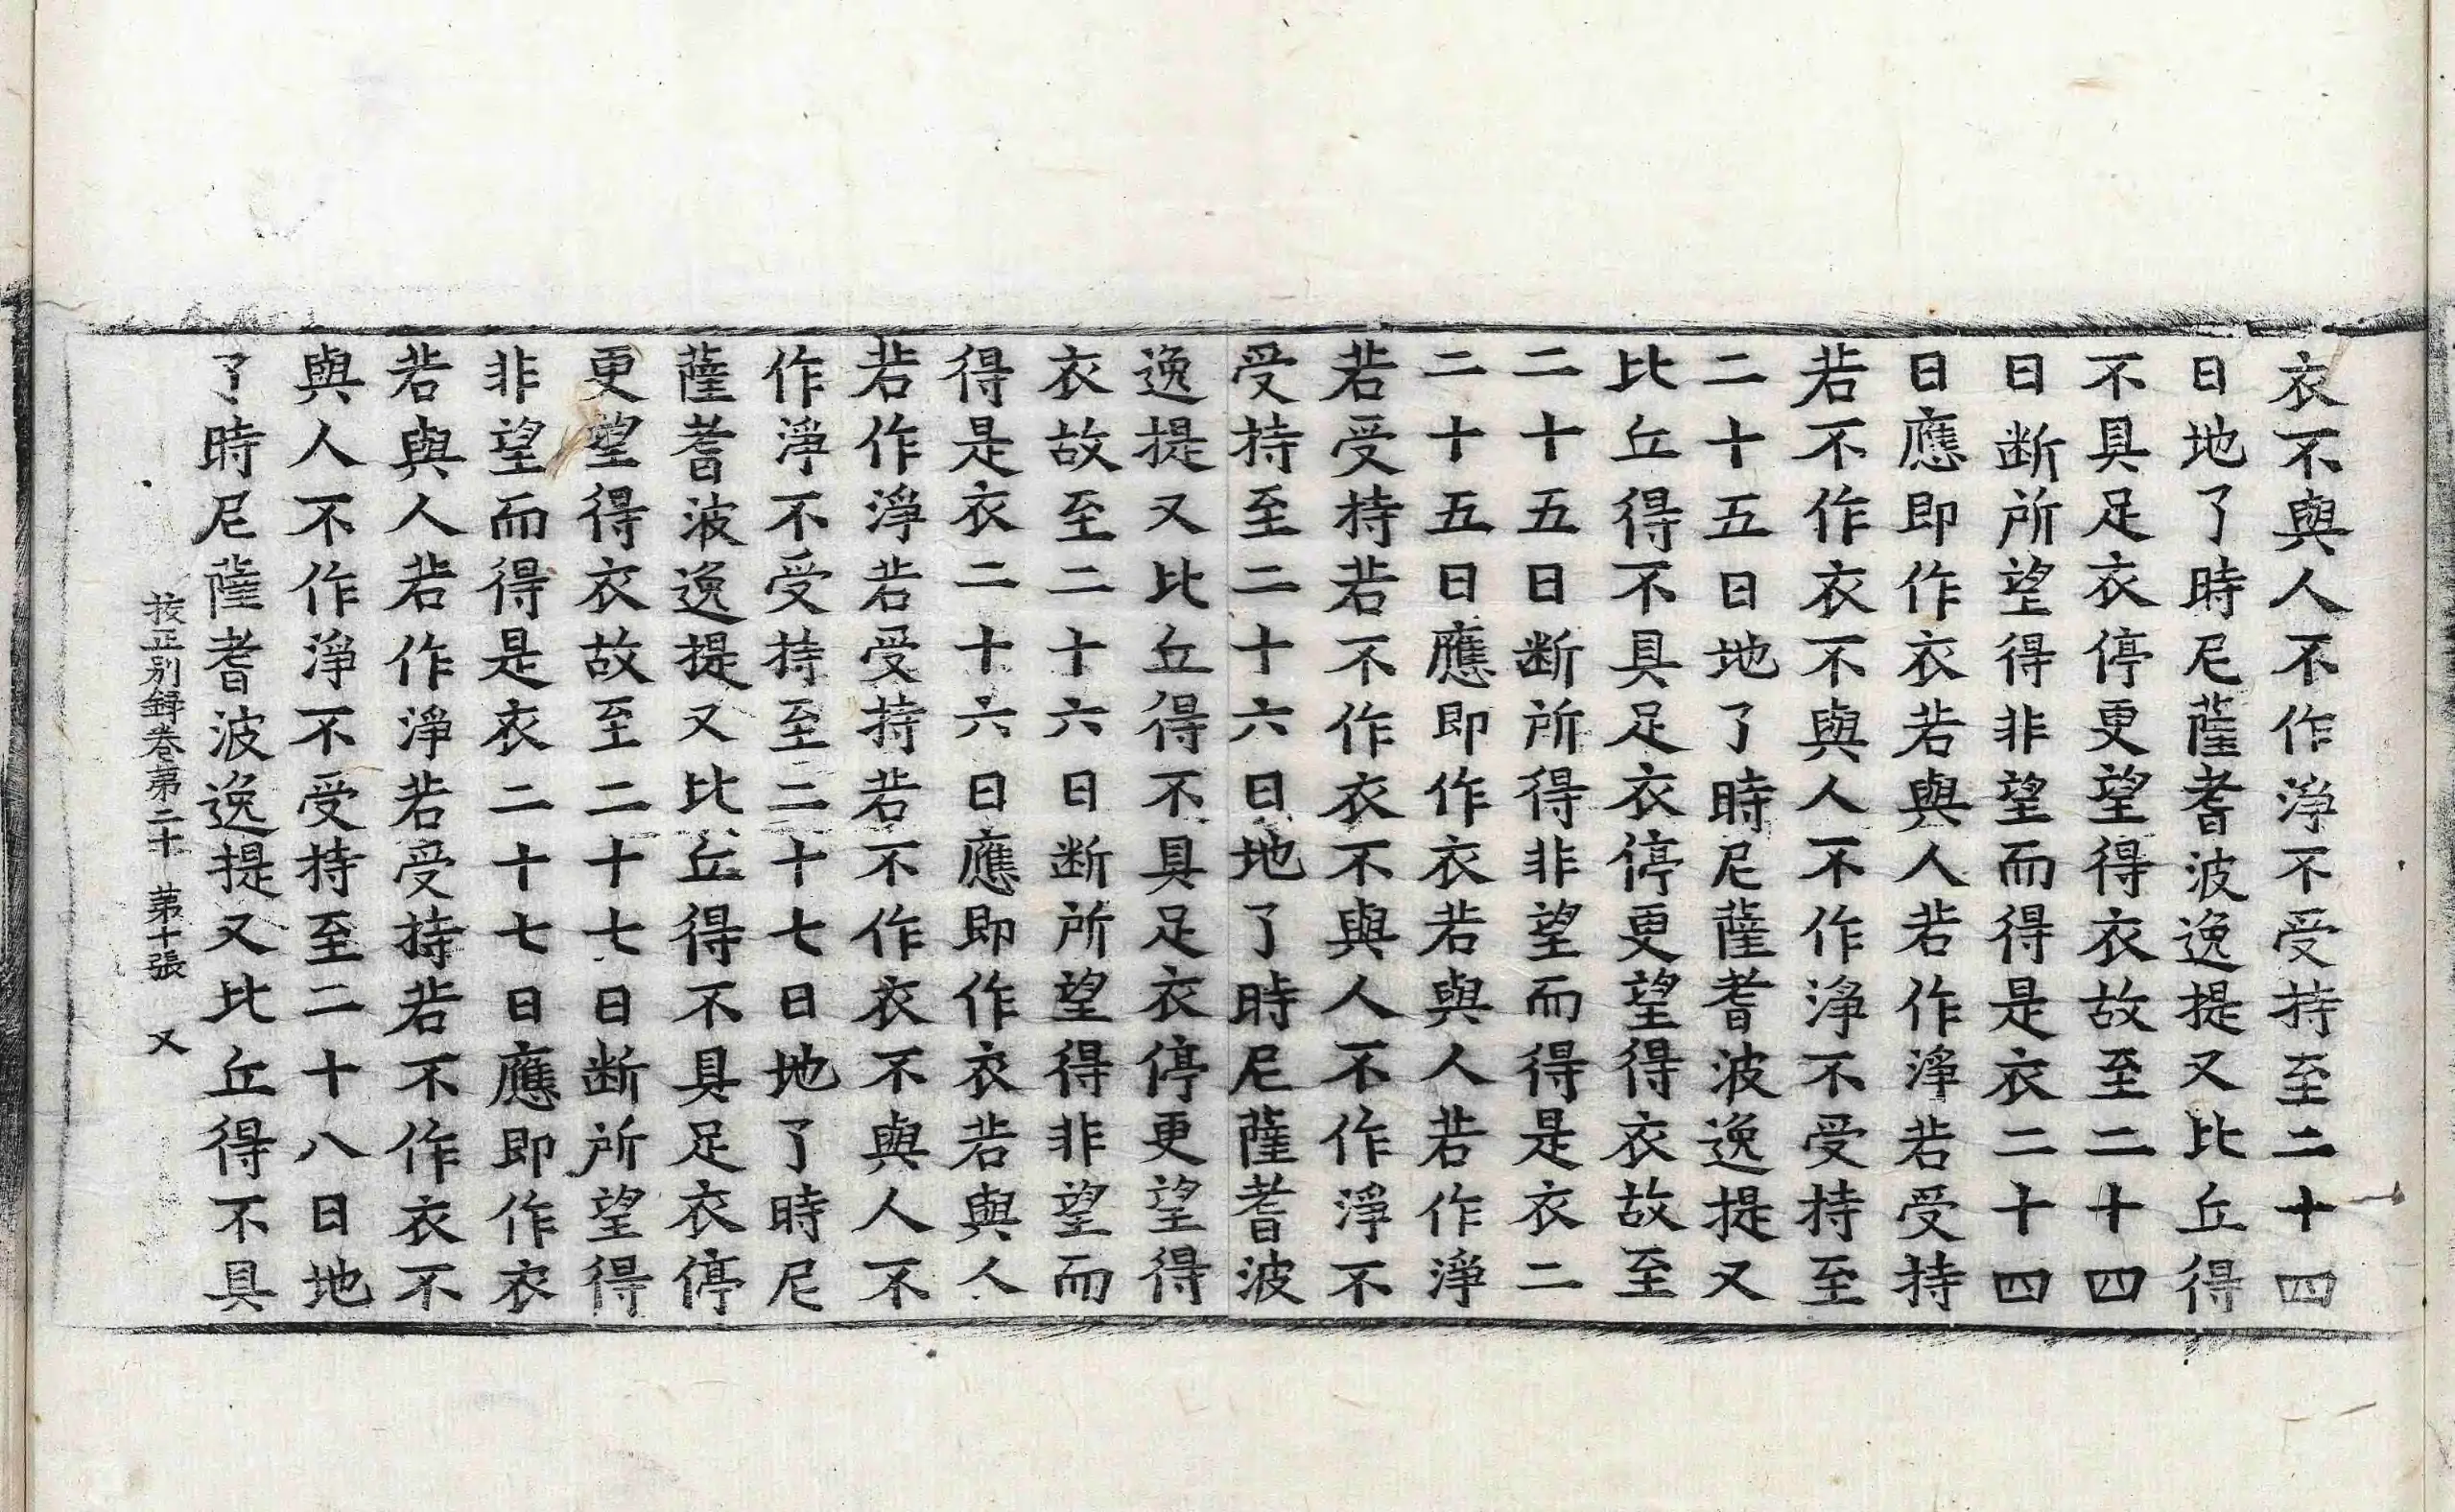 衣不與人不作淨不受持至二十四
日地了時尼薩耆波逸提又比丘得
不具足衣停更望得衣故至二十四
日断所望得非望而得是衣二十四
日應即作衣若與人若作淨若受持
若不作衣不與人不作淨不受持至
二十五日地了時尼薩耆波逸提又
比丘得不具足衣停更望得衣故至
二十五日断所得非望而得是衣二
二十五日應即作衣若與人若作淨
若受持若不作衣不與人不作淨不
受持至二十六日地了時尼薩耆波
逸提又比丘得不具足衣停更望得
衣故至二十六日断所望得非望而
得是衣二十六日應即作衣若與人
若作淨若受持若不作衣不與人不
作淨不受持至二十七日地了時尼
薩耆波逸提又比丘得不具足衣停
更望得衣故至二十七日断所望得
非望而得是衣二十七日應即作衣
若與人若作淨若受持若不作衣不
與人不作淨不受持至二十八日地
了時尼薩耆波逸提又比丘得不具
挍正別錄卷第二十 第十張 又